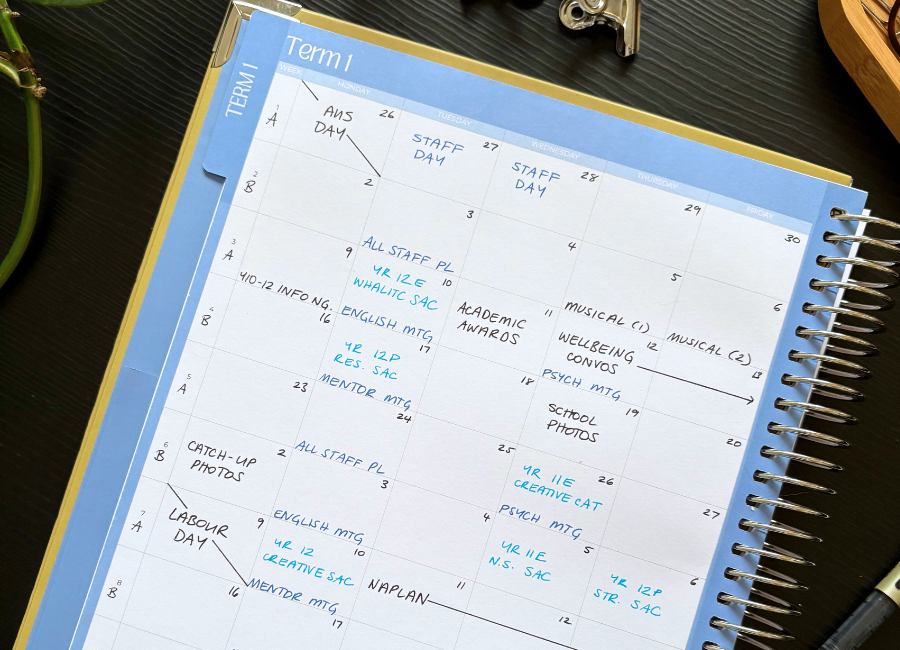 TERM 1
Term 1
WEEK
MONDAY
TUESDAY
WEDNESDAY
THURSDAY
FRIDAY
1
A
26
AUS
DAY
27
STAFF
DAY
28
STAFF
DAY
29
30
2
B
2
3
ALL STAFF PL
4
5
MUSICAL (1)
6
MUSICAL (2)
3
A
9
Y10-12 INFO NG.
10
YR 12E
WHALITC SAC
ENGLISH MTG
11
ACADEMIC
AWARDS
12
WELLBEING
CONVOS
PSYCH MTG
13
4
B
16
17
YR 12P
RES. SAC
MENTOR MTG
18
19
SCHOOL
PHOTOS
20
5
A
23
24
ALL STAFF PL
25
26
YR 11E
CREATIVE CAT
PSYCH MTG
27
6
B
2
CATCH-UP
PHOTOS
3
ENGLISH MTG
4
5
YR 11E
N.S. SAC
6
YR 12P
STR. SAC
7
A
9
LABOUR
DAY
10
YR 12
CREATIVE SAC
MENTOR MTG
11
NAPLAN
12
8
B
16
17